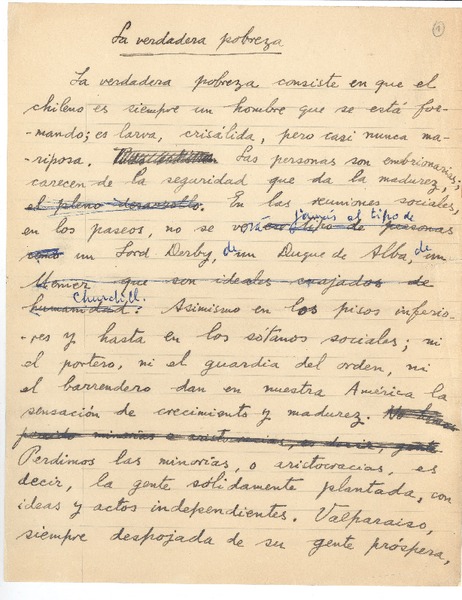 1
La verdadera pobreza
La verdadera pobreza consiste en que el
chileno es siempre un hombre que se está for-
mando; es larva, crisálida, pero casi nunca ma-
riposa. Las personas son embrionarias;
carecen de la seguridad que da la madurez,
el pleno desarrollo. En las reuniones sociales,
jamás el tipo de
en los paseos, no se verá ese tipo de personas
como un Lord Derby, de un Duque de Alba, de un
Homer que son ideales cuajados de
Churchill.
humanidad. Asimismo en los pisos inferio-
res y hasta en los sótanos sociales; ni
el portero, ni el guardia del orden, ni
el barrendero dan en nuestra América la
sensación de crecimiento y madurez. No hemos
minorías o aristocracias, es decir, gente
Perdimos las minorías, o aristocracias, es
decir, la gente sólidamente plantada, con
ideas y actos independientes. Valparaíso,
siempre despojada de su gente próspera,